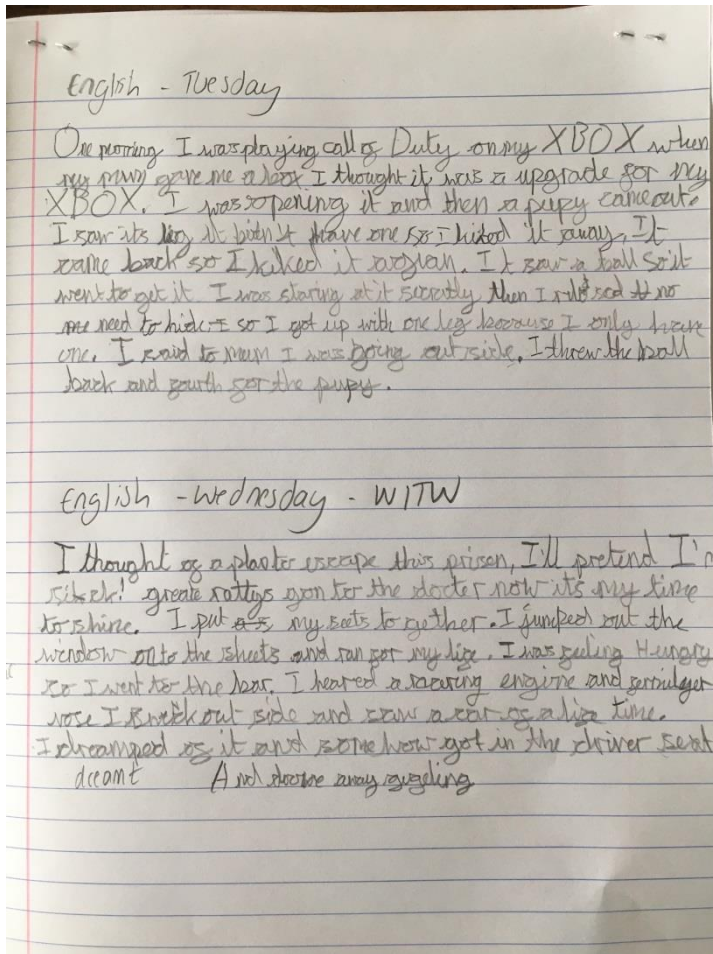 English - Tuesday
One morning I was playing call of Duty on my XBOX when
my mum gave me a box I thought it was a upgrade for my
XBOX. I was opening it and then a pupy came out.
I saw its leg it didn't have one so I kiked it away, It
came back so I kiked it again. It saw a ball so it
went to get it I was staring at it secratly then I no
need to hide it so I got up with one leg because I only have
one. I said to mum I was going out side. I threw the ball
back and fourth for the pupy.
English - Wednesday - WITW
I thought of a plan to escape this prison, I'll pretend I'm
sikck! greate rattys gon to the docter now it's my time
to shine. I put my seets to gether. I jumped out the
window onto the sheets and ran for my life. I was feeling Hungry
so I went to the bar. I heared a roaring engine and
nose I out side and saw a car of a life time.
I dreamped of it and some how got in the driver seat
dreamt And drove away gugeling